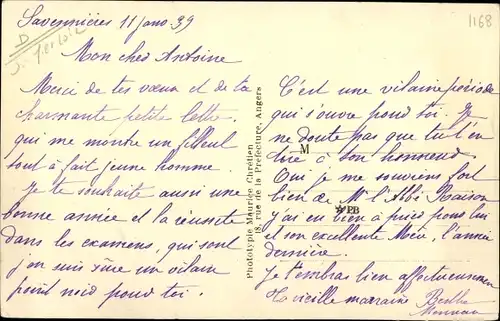 Savennières 11 janv. 39
1168
D
Mon cher Antoine
Merci de tes vœux et de ta
charmante petite lettre.
qui me montre un filleul
tout à fait jeune homme.
Je te souhaite aussi une
bonne année et la réussite
dans les examens, qui sont
j'en suis sûre un vilain
point noir pour toi.
Phototypie Maurice Chrétien
18, rue de la Préfecture, Angers
M
C'est une vilaine période
qui s'ouvre pour toi. Je
ne doute pas que tu t'en
tire à ton honneur.
Oui je me souviens fort
bien de Mr l'Abbé Raison
j'ai eu bien à puis pour lui
et son excellente Mère, l'année
dernière.
Je t'embrasse bien affectueusement
Ta vieille marraine Berthe